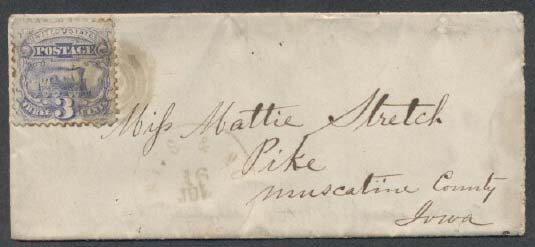 UNITED STATES
POSTAGE
THREE 3 CENTS
Miss Mattie Stretch
Pike
Muscatine County
Iowa